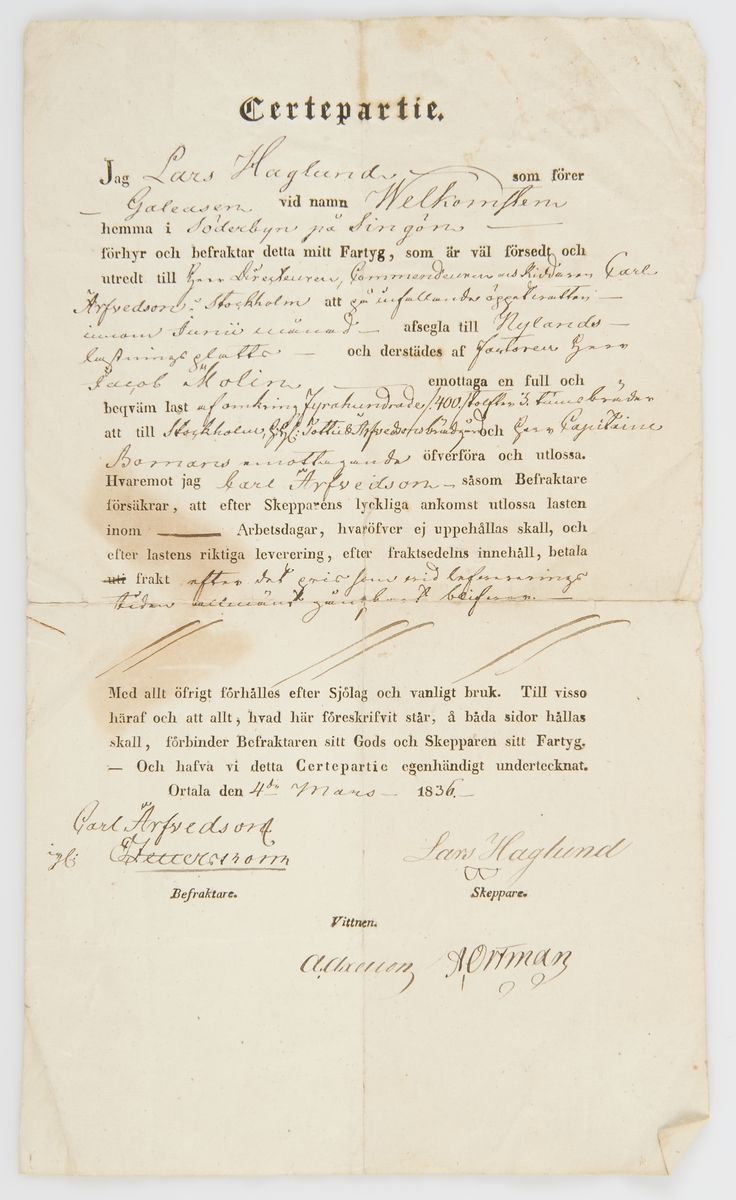 Certepartie.
Jag Lars Haglund som förer
Galeasen vid namn Welkomsten
hemma i Söderbyn på Singön
förhyr och befraktar detta mitt Fartyg, som är väl försedt och
utredt till Herr Directeuren, Commendeuren och Riddaren Carl
Arfvedson i Stockholm att på infallande öppet vatten
innom Junii månad afsegla till Nylands
lastnings platts och derstädes af factoren Herr
Jacob Molin emottaga en full och
beqväm last af omkring Fyrahundrade /:400:/ tolfter 3 tums bräder
att till Stockholm, Tottie & Arfvedsons brädgård och Herr Capitaine
Bomans emottagande öfverföra och utlossa.
Hvaremot jag Carl Arfvedson såsom Befraktare
försäkrar, att efter Skepparens lyckliga ankomst utlossa lasten
inom Arbetsdagar, hvaröfver ej uppehållas skall, och
efter lastens riktiga leverering, efter fraktsedelns innehåll, betala
uti frakt efter det pris som vid lefererings
tiden allmänt gångbart blifver.
Med allt öfrigt förhålles efter Sjölag och vanligt bruk. Till visso
häraf och att allt, hvad här föreskrifvit står, å båda sidor hållas
skall, förbinder Befraktaren sitt Gods och Skepparen sitt Fartyg.
— Och hafva vi detta Certepartie egenhändigt undertecknat.
Ortala den 4de Mars 1836.
Carl Arfvedson
Lars Haglund
Befraktare. Skeppare.
Vittnen.
A Ortman